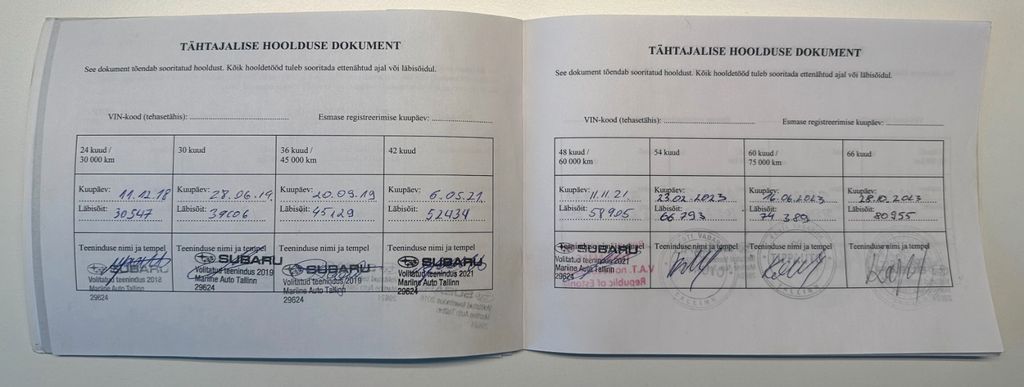 TÄHTAJALISE HOOLDUSE DOKUMENT
See dokument tõendab sooritatud hooldust. Kõik hooldetööd tuleb sooritada ettenähtud ajal või läbisõidul.
VIN-kood (tehasetähis): Esmase registreerimise kuupäev:
24 kuud / 30 000 km
30 kuud
36 kuud / 45 000 km
42 kuud
Kuupäev: 11.12.18
Läbisõit: 30547
Kuupäev: 28.06.19
Läbisõit: 39006
Kuupäev: 20.09.19
Läbisõit: 45129
Kuupäev: 6.05.21
Läbisõit: 52434
Teeninduse nimi ja tempel
SUBARU
Volitatud teenindus 2018
Mariine Auto Tallinn
29624
Teeninduse nimi ja tempel
SUBARU
Volitatud teenindus 2019
Mariine Auto Tallinn
29624
Teeninduse nimi ja tempel
SUBARU
Volitatud teenindus 2019
Mariine Auto Tallinn
29624
Teeninduse nimi ja tempel
SUBARU
Volitatud teenindus 2021
Mariine Auto Tallinn
29624
TÄHTAJALISE HOOLDUSE DOKUMENT
See dokument tõendab sooritatud hooldust. Kõik hooldetööd tuleb sooritada ettenähtud ajal või läbisõidul.
VIN-kood (tehasetähis): Esmase registreerimise kuupäev:
48 kuud / 60 000 km
54 kuud
60 kuud / 75 000 km
66 kuud
Kuupäev: 11.11.21
Läbisõit: 58905
Kuupäev: 23.02.2023
Läbisõit: 66793
Kuupäev: 16.06.2023
Läbisõit: 74 389
Kuupäev: 28.10.2023
Läbisõit: 80955
Teeninduse nimi ja tempel
SUBARU
Volitatud teenindus 2021
Mariine Auto Tallinn
29624
Teeninduse nimi ja tempel
TALLINN
Teeninduse nimi ja tempel
TALLINN
Teeninduse nimi ja tempel